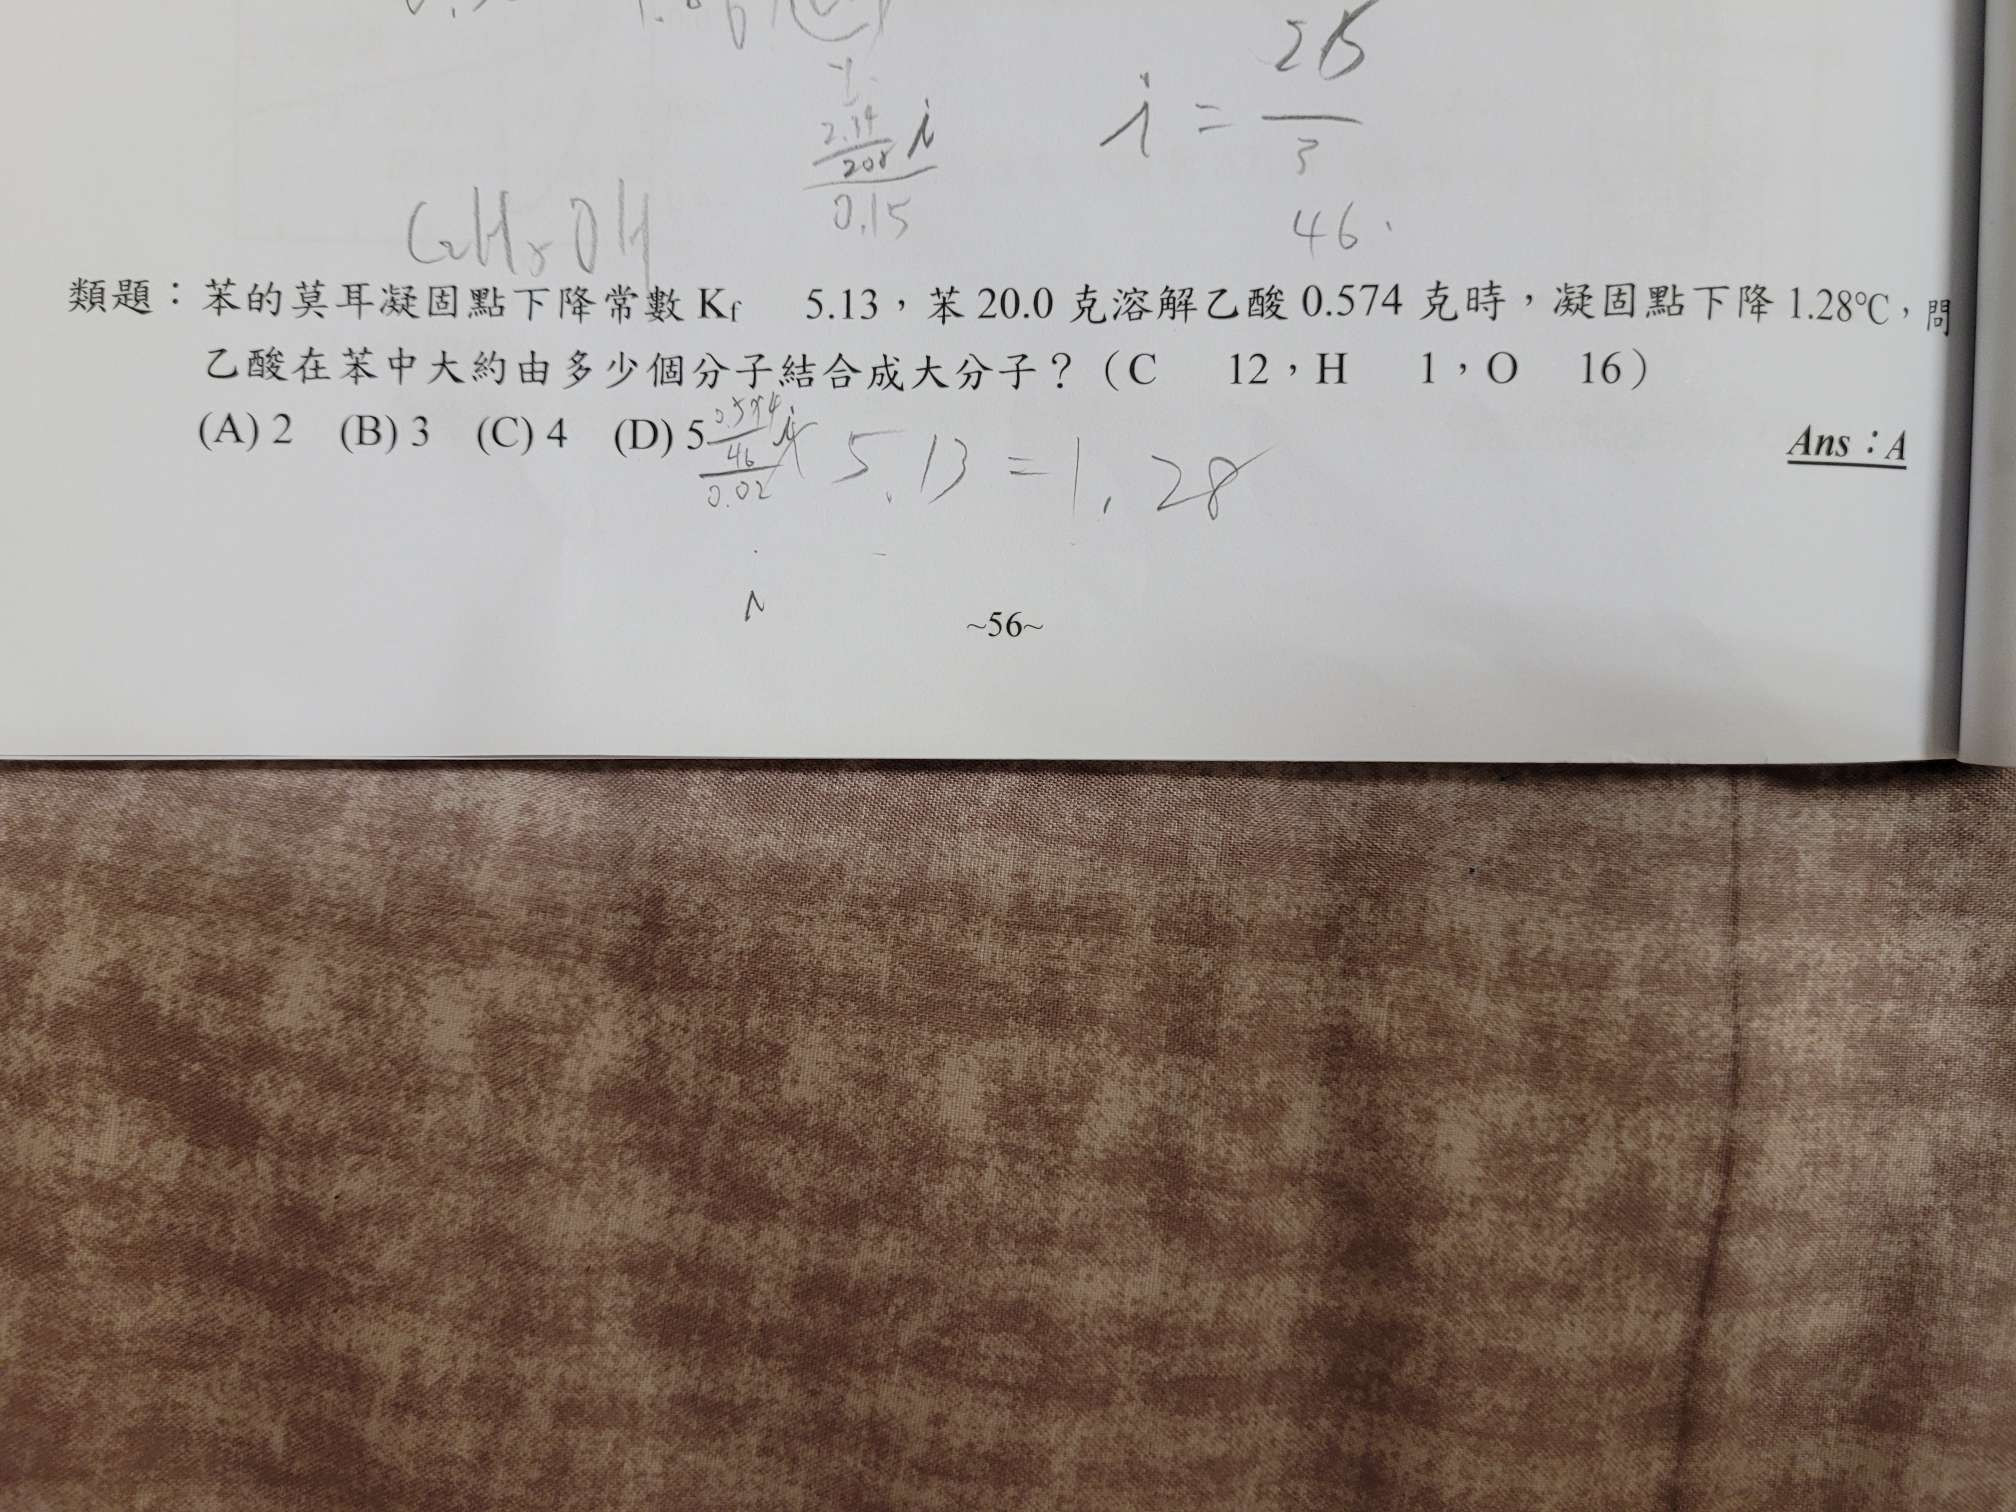 i = 25/3
2.34/208 i
0.15
46.
C2H5OH
類題：苯的莫耳凝固點下降常數 Kf 5.13，苯 20.0 克溶解乙酸 0.574 克時，凝固點下降 1.28℃，問
乙酸在苯中大約由多少個分子結合成大分子？（C 12，H 1，O 16）
(A) 2 (B) 3 (C) 4 (D) 5
Ans：A
0.574/46 i / 0.02 × 5.13 = 1.28
~56~